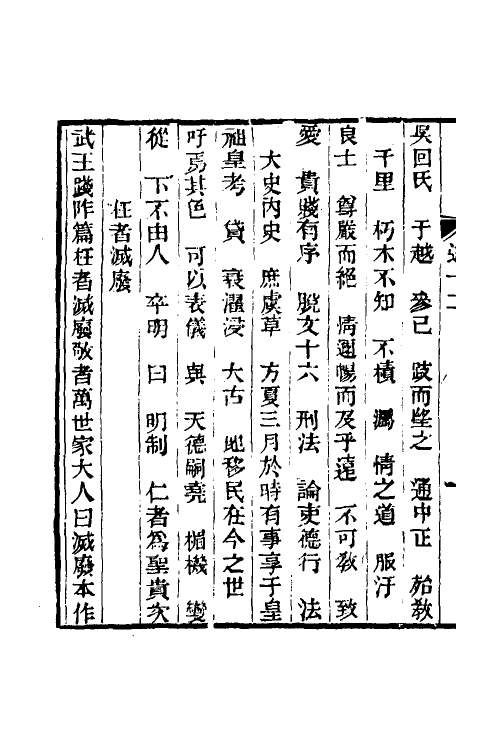 吳回氏　于越　參己　跂而望之　通中正　始教
千里　朽木不知　不積　漏　情之道　服汙
良士　尊嚴而絕　情邇暢而及乎遠　不可教　致
愛　貴賤有序　脫文十六　刑法　論吏德行　法
大史內史　庶虞草　方夏三月於時有事享于皇
祖皇考　貸　衰濯浸　大古　地移民在今之世
吁焉其色　可以表儀　與　天德嗣堯　楣機　變
從　下不由人　卒明　曰　明制　仁者爲聖貴次
枉者滅廢
武王踐阼篇枉者滅廢敬者萬世家大人曰滅廢本作